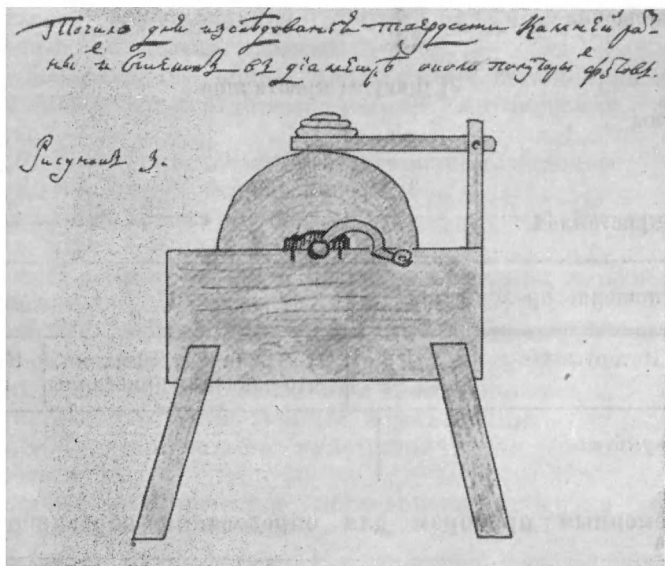 Точило для изслѣдованїя твердости Камней раз-
ныхъ и Стеколъ въ діаметрѣ около полуторы футовъ.
Рисунокъ 3.